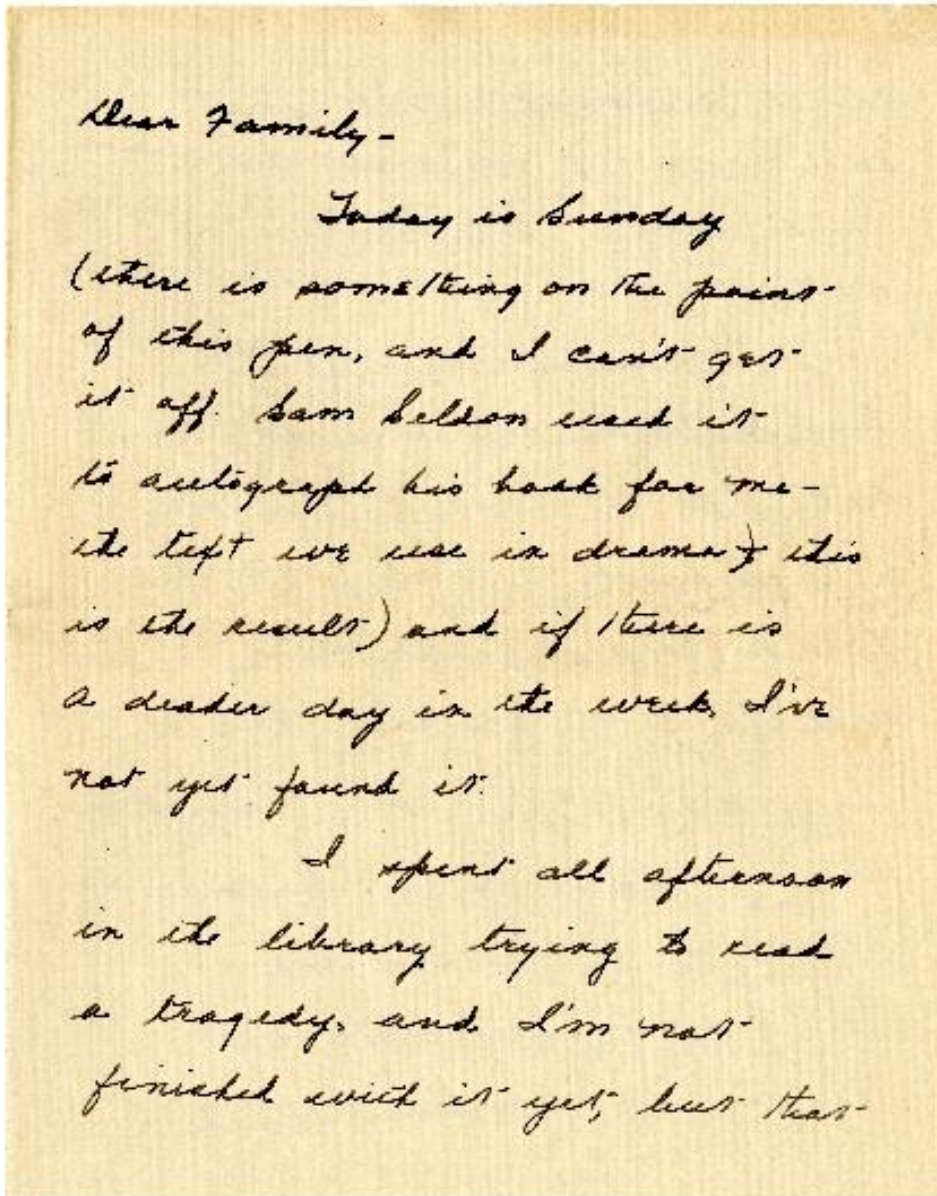 Dear Family-
Today is Sunday
(there is something on the point
of this pen, and I can't get
it off. Sam Seldon used it
to autograph his book for me-
the text we use in drama & this
is the result) and if there is
a deader day in the week, I've
not yet found it.
I spent all afternoon
in the library trying to read
a tragedy, and I'm not
finished with it yet, but that